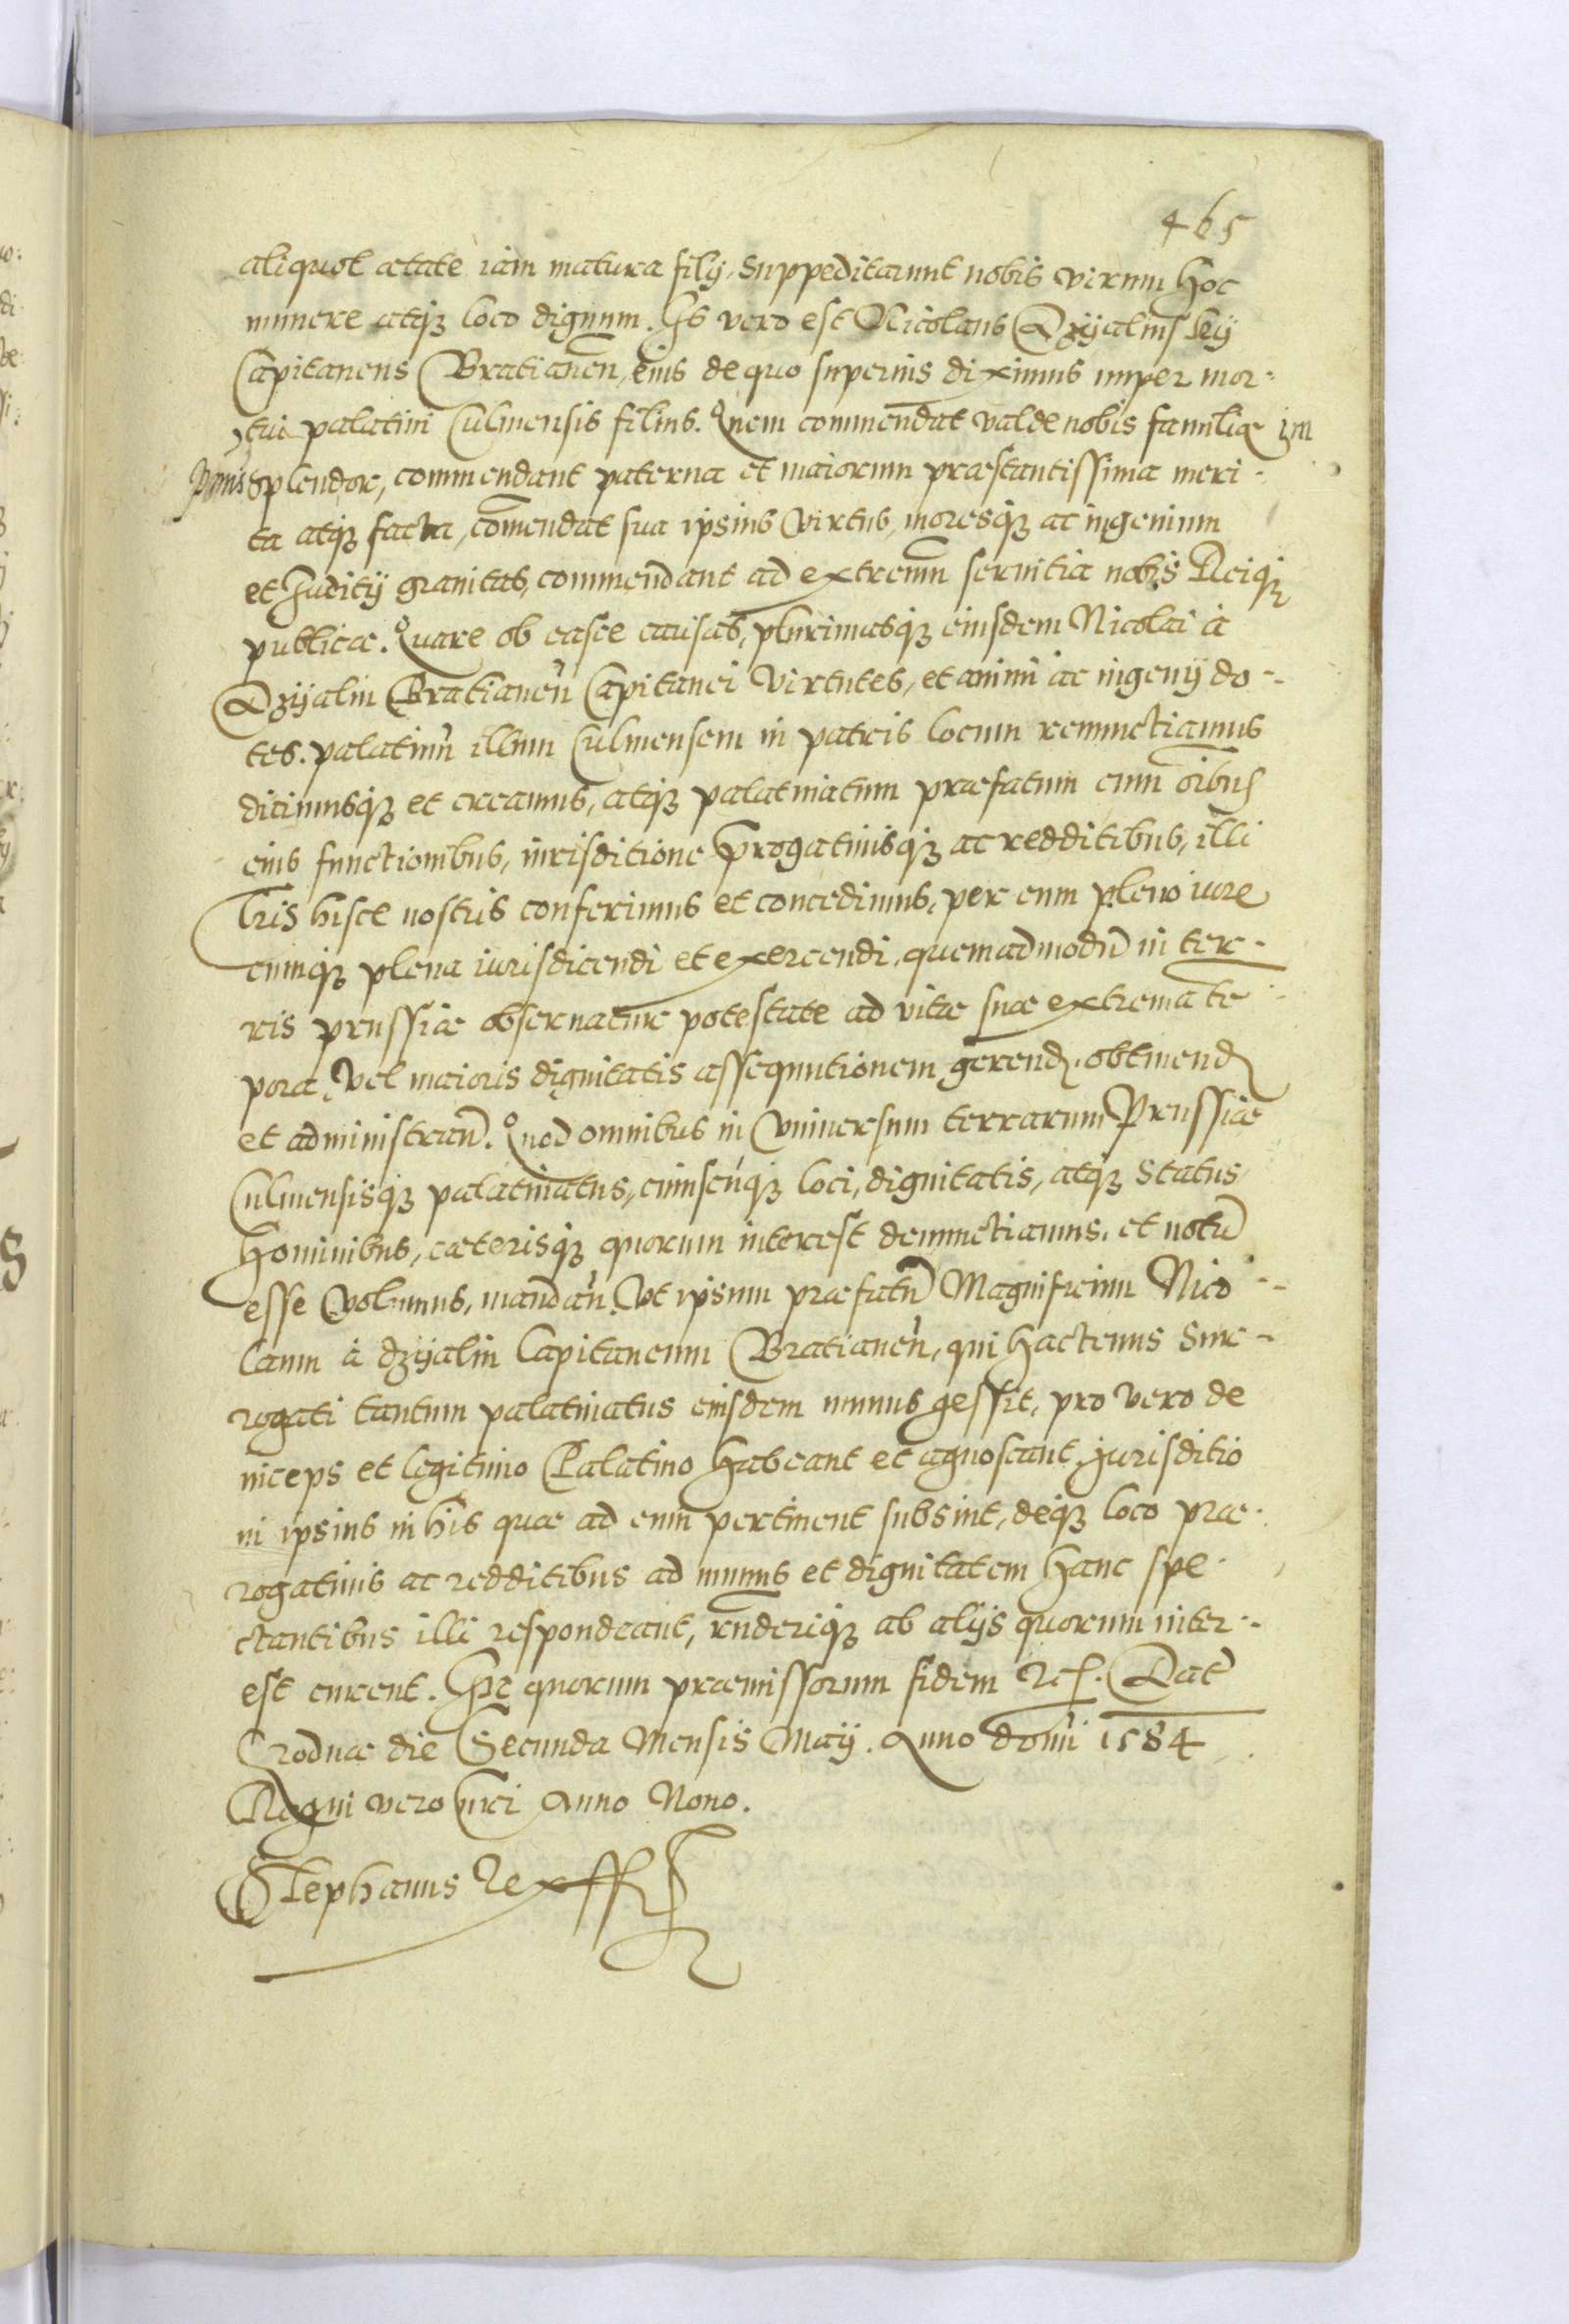 465
aliquot ætate iam matura filij, suppeditarunt nobis virum hoc
munere atq3 loco dignum. Is vero est Nicolaus Dzyalinskij
Capitaneus Bratianeñ, eius de quo superius diximus nuper mor-
tui palatini Culmensis filius. Quem commendat valde nobis familiæ
splendor, commendant paterna et maiorum præstantissima meri-
ta atq3 facta, cōmendat sua ipsius virtus, moresq3 ac ingenium
et Juditij grauitas, commendant ad extremū seruitia nobis Reiq3
publicæ. Quare ob easce causas, plurimasq3 eiusdem Nicolai à
Dzyalin Bratianeñ Capitanei Virtutes, et animi ac ingenij do-
tes. palatinū illum Culmensem in patris locum renunctiamus
dicimusq3 et creamus, atq3 palatinatum præfatum cum oībus
eius functionibus, iurisditione prrogatiuisq3 ac redditibus, illi
Lris hisce nostris conferimus et concedimus, per eum pleno iure
cumq3 plena iurisdicendi et exercendi, quemadmodū in ter-
ris prussiæ obseruatur potestate ad vitæ suæ extrema tē
pora, Vel maioris dignitatis assequutionem gerend. obtinend
et administrand. Quod omnibus in vniuersum terrarum Prussiæ
Culmensisq3 palatinatus, cuiuscūq3 loci, dignitatis, atq3 status
hominibus, cæterisq3 quorum interest denunctiamus, et notū
esse volumus, mandañ. Vt ipsum præfatū Magnificum Nico-
laum à dzyalin Capitaneum Bratianeñ, qui hactenus Surr-
rogati tantum palatinatus eiusdem munus gessit, pro vero de
niceps et legitimo Palatino habeant et agnoscant, jurisditio
ni ipsius in his quæ ad eum pertinent subsint, deq3 loco præ-
rogatiuis ac redditibus ad munus et dignitatem hanc spe-
ctantibus illi respondeant, rñderiq3 ab alijs quorum inter-
est curent. In quorum præmissorum fidem etc. Dat
Grodnæ die Secunda Mensis Maij. Anno domī 1584
Regni vero nri Anno Nono.
Stephanus Rex sst